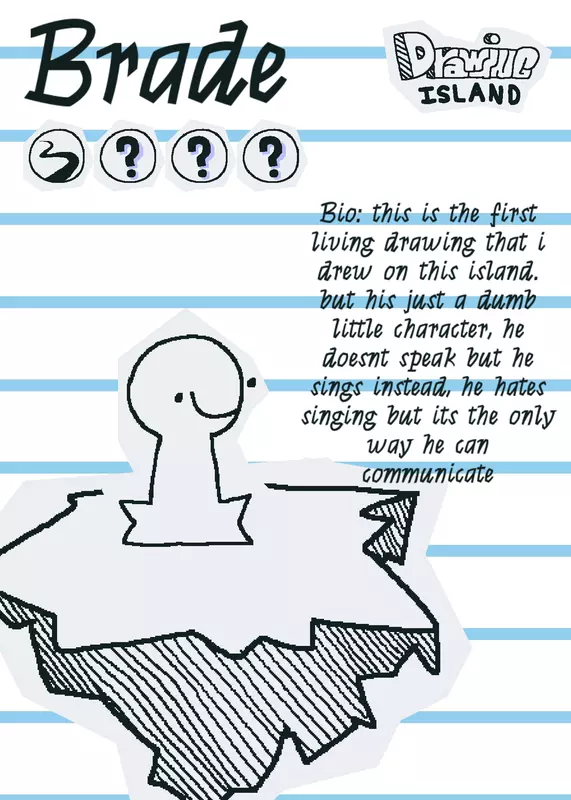 Brade
Drawing
ISLAND
? ? ?
Bio: this is the first
living drawing that i
drew on this island.
but his just a dumb
little character, he
doesnt speak but he
sings instead, he hates
singing but its the only
way he can
communicate